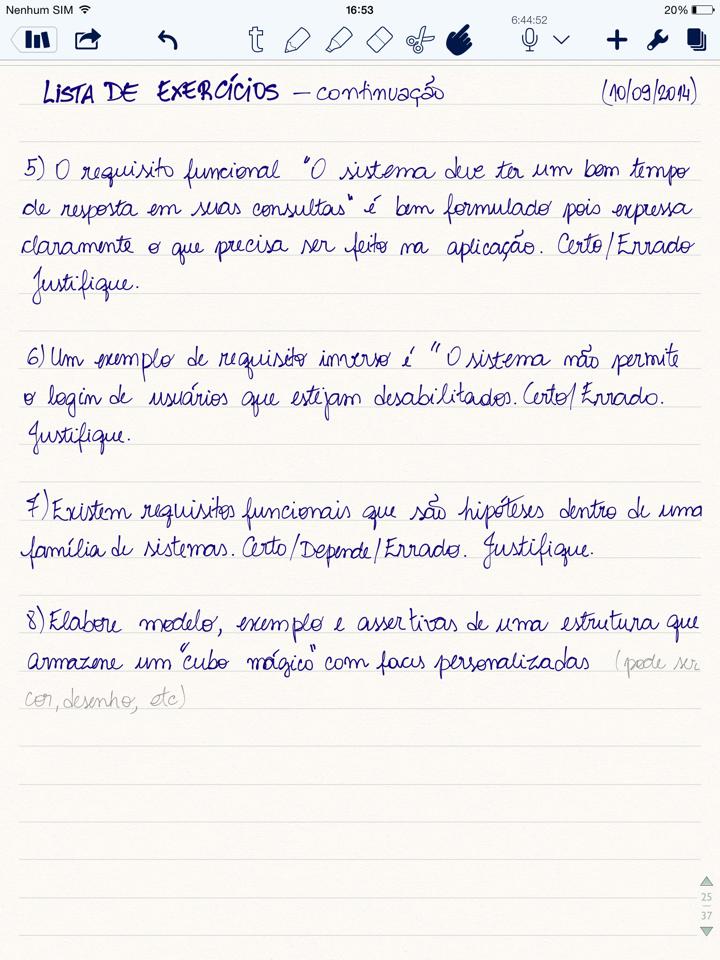 Nenhum SIM 16:53 20%
6:44:52
t
LISTA DE EXERCÍCIOS – continuação (10/09/2014)
5) O requisito funcional "O sistema deve ter um bom tempo
de resposta em suas consultas" é bem formulado pois expressa
claramente o que precisa ser feito na aplicação. Certo/Errado
Justifique.
6) Um exemplo de requisito inverso é "O sistema não permite
o login de usuários que estejam desabilitados. Certo/Errado.
Justifique.
7) Existem requisitos funcionais que são hipóteses dentro de uma
família de sistemas. Certo/Depende/Errado. Justifique.
8) Elabore modelo, exemplo e assertivas de uma estrutura que
armazene um "cubo mágico" com faces personalizadas (pode ser
cor, desenho, etc)
25
37